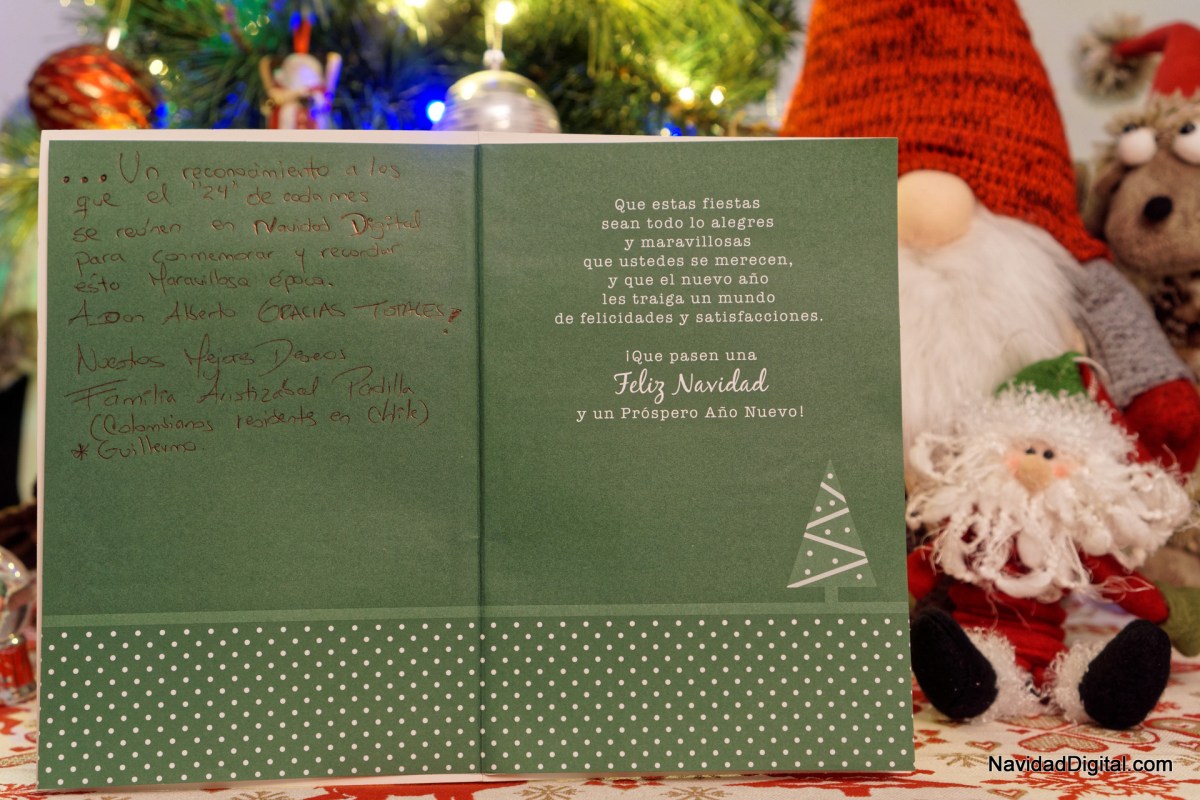 ... Un reconocimiento a los
que el "24" de cada mes
se reúnen en Navidad Digital
para conmemorar y recordar
ésto Maravillosa época.
A Don Alberto GRACIAS TOTALES!
Nuestros Mejores Deseos
Familia Aristizabal Padilla
(Colombianos residents en Chile)
* Guillermo.
Que estas fiestas
sean todo lo alegres
y maravillosas
que ustedes se merecen,
y que el nuevo año
les traiga un mundo
de felicidades y satisfacciones.
¡Que pasen una
Feliz Navidad
y un Próspero Año Nuevo!
NavidadDigital.com